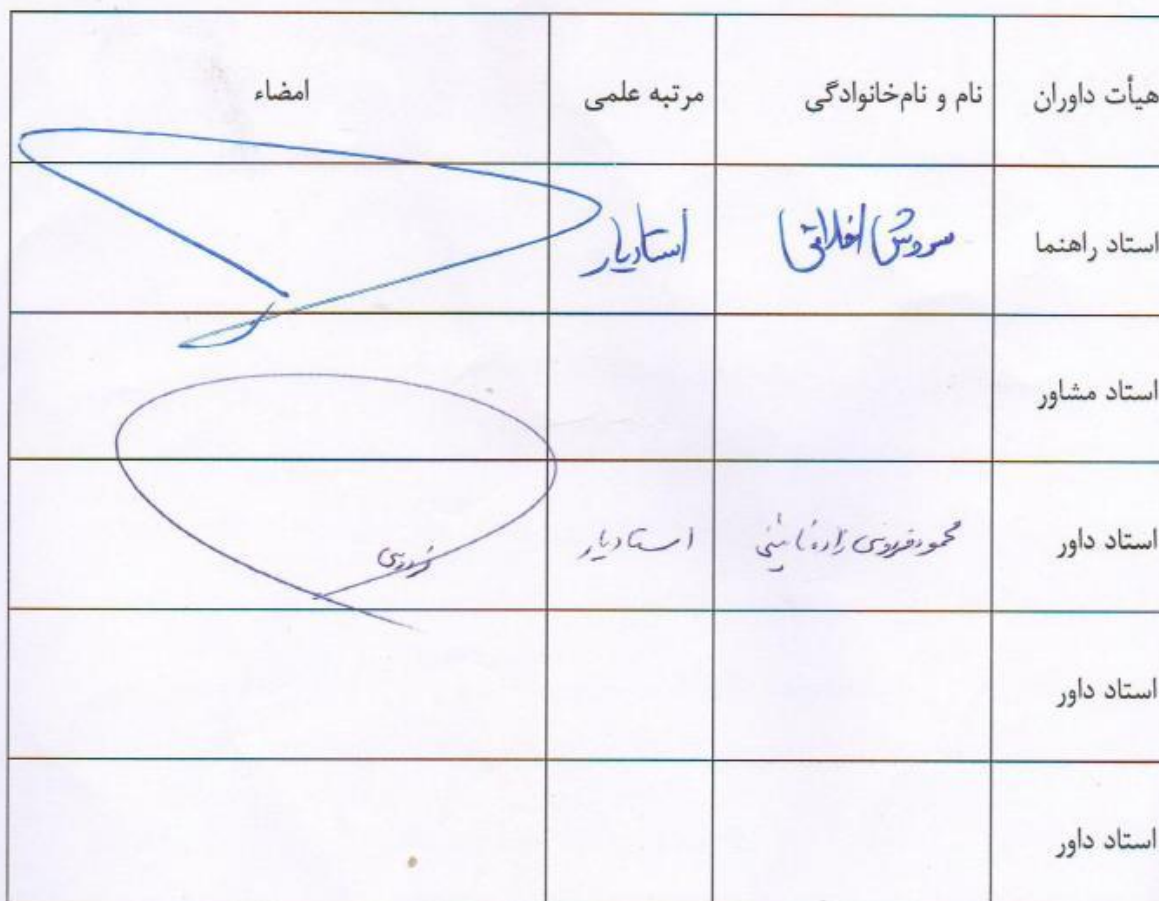 هیأت داوران نام و نام‌خانوادگی مرتبه علمی امضاء
استاد راهنما سروش اخلاقی استادیار
استاد مشاور
استاد داور محمود فردوسی زاده نائینی استادیار
استاد داور
استاد داور